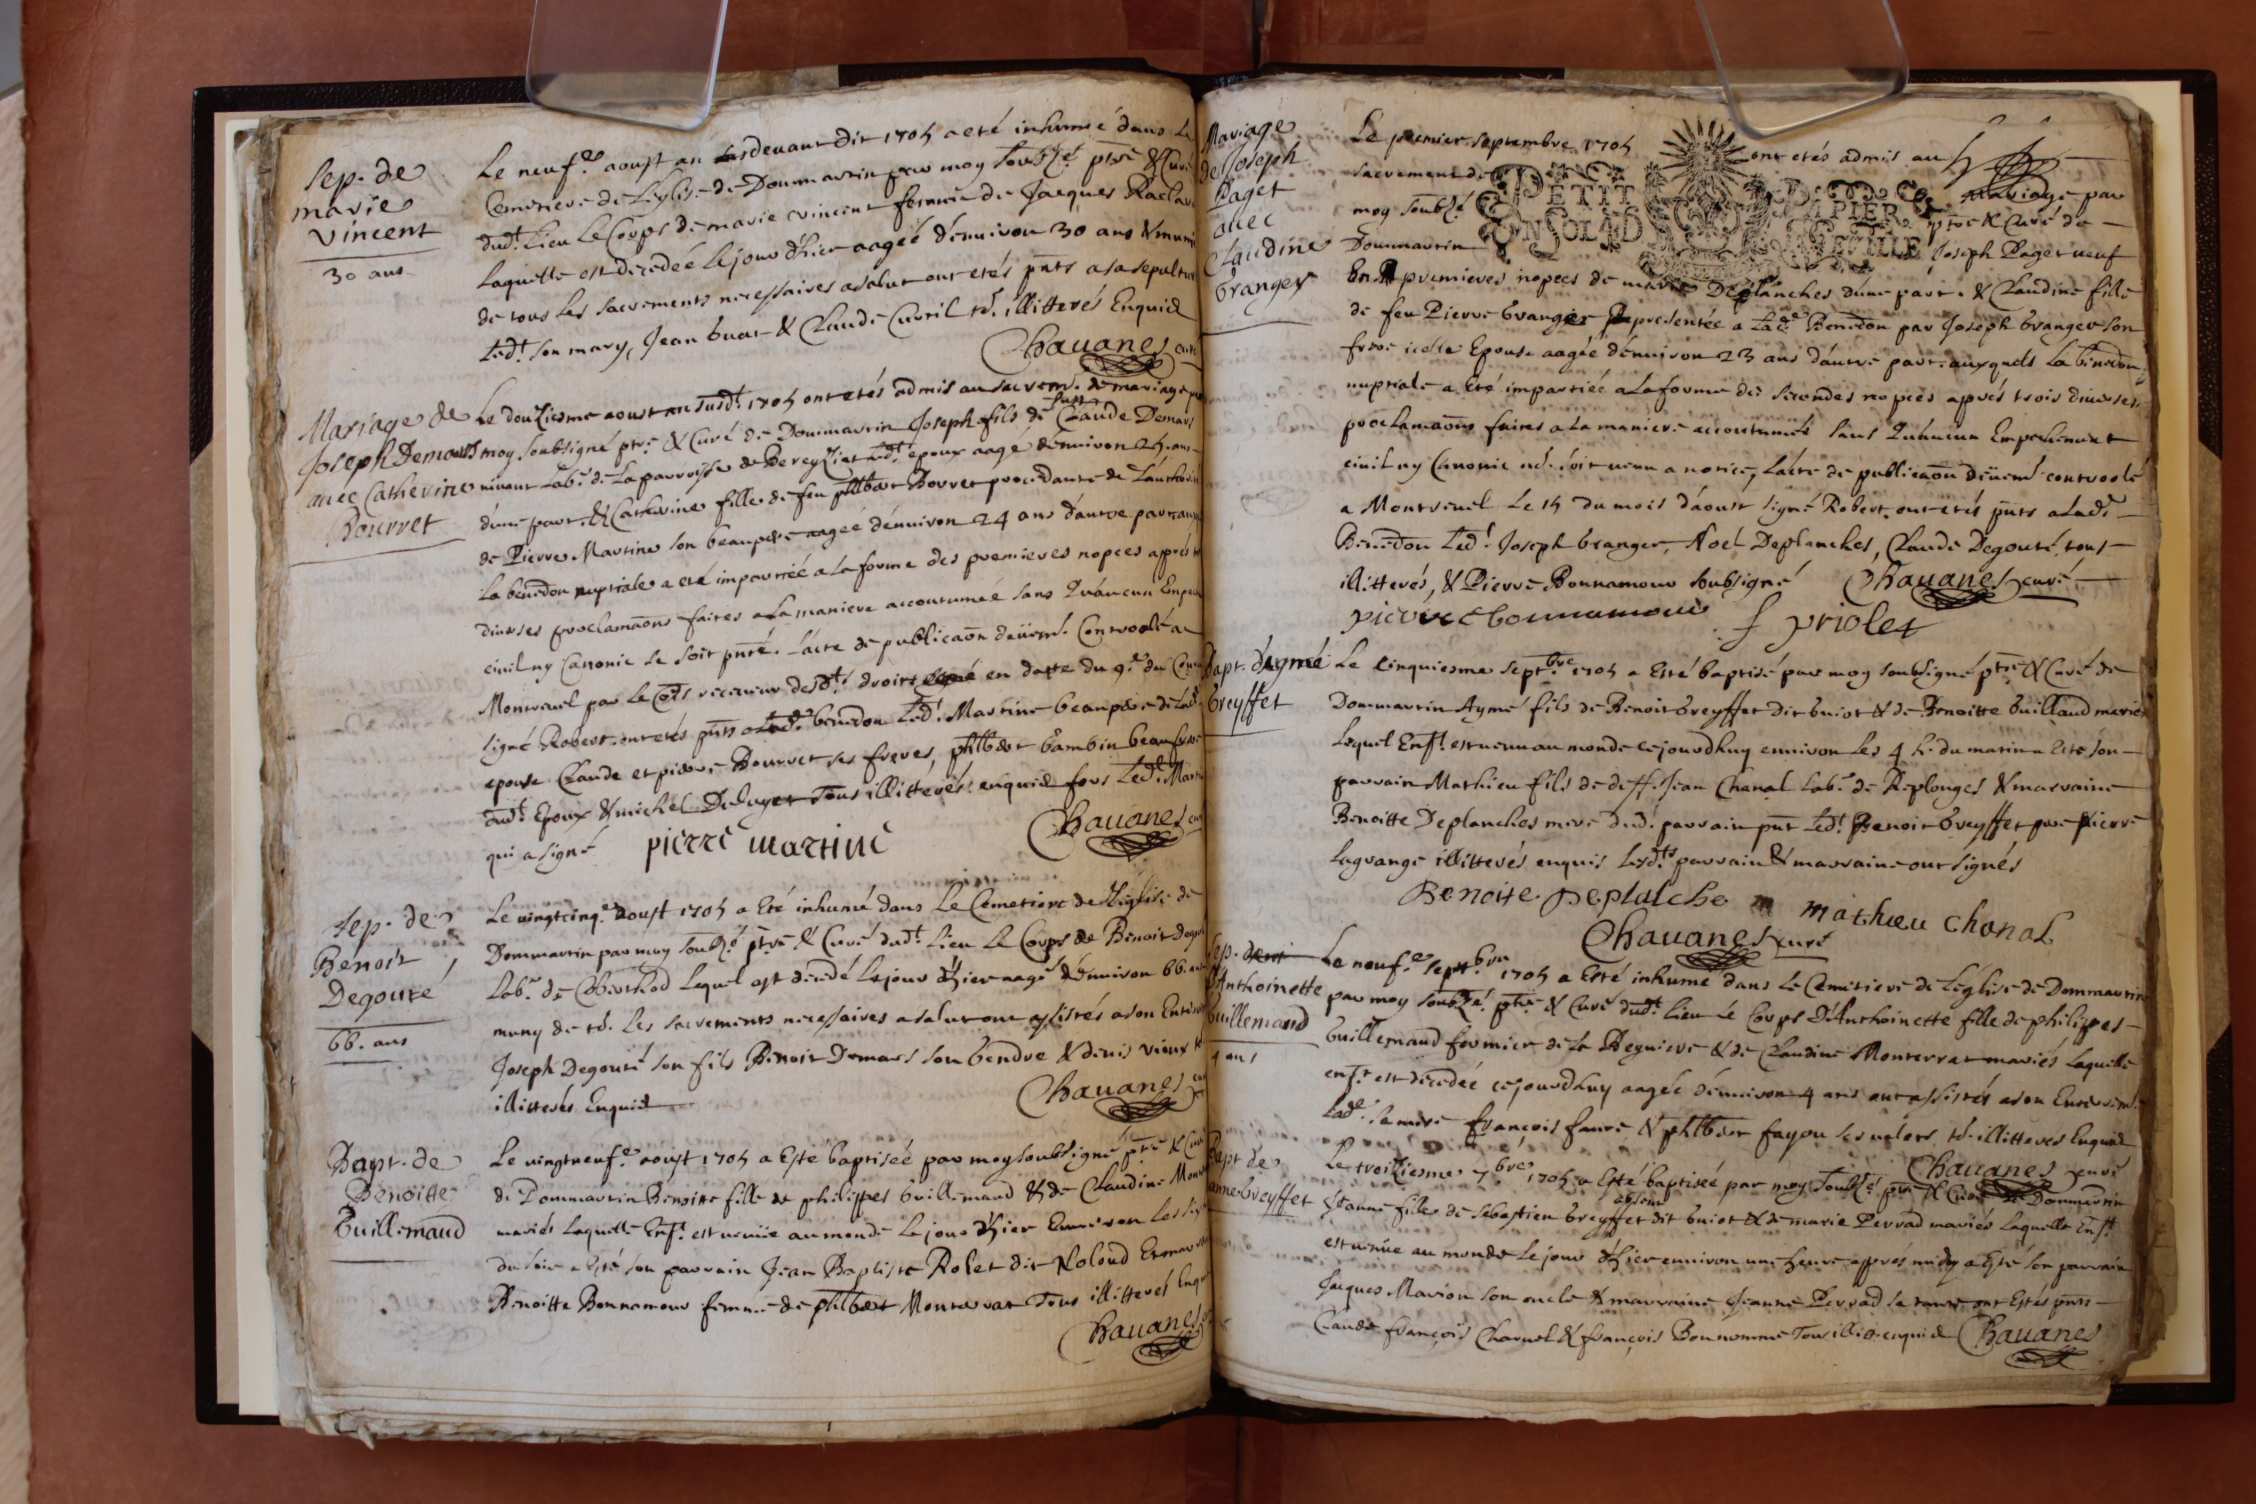 Sep. de
marie
Vincent
30 ans
Le neuf.e aoust an susdevant dit 1705 a eté inhumé dans le
Cemetiere de L'eglise de Dommartin par moy soubzé ptre & Curé
dudt. Lieu Le Corps de marie vincent femme de Jacques
laquelle est decedeé le jour d'hier aageé d'enuiron 30 ans & muni
de tous les sacrements necessaires a salut ont etés pnts a sa sepulture
Ledt. son mary, Jean buat & Claude Cuvril td. illiterés Enquid
Chauanes curé
Mariage de
Joseph Demars
auec Catherine
Bourret
Le douziesme aoust an susdt. 1705 ont etés admis au sacrem. de mariage par
moy soubsigné ptre & Curé de Dommartin Joseph fils de feu Claude Demars
viuant Lab.r de La parroisse de Bereyziat ledt. epoux aagé d'enuiron 25. ans
d'une part. & Catherine fille de feu phlbert Borret procedante de L'authorité
de Pierre Martine son beaupere aageé d'enuiron 24 ans d'autre part
La benedon nuptiale a eté impartieé a la forme des premieres nopces apprés
diuerses proclamaons faites a la maniere accoutumeé sans Qu'aucun Empe
ciuil ny Canonic se soit pnté. L'acte de publicaon deüem. Controolé a
Montreuel par le Cois receueur desdts. droits signé en datte du 9.e du
signé Robert. ont etés pnts a Lad.e benedon Ledt. Martine beaupere de Lad.
epouse Claude et pierre Bourret ses freres, phlbert bambin beaufrere
dudt. Epoux & michel Deluyer Tous illiterés enquid fors Ledt. Martine
qui a signé
pierre martine
Chauanes
Sep. de
Benoit
Degouté
66. ans
Le uingtcinq.e aoust 1705 a Eté inhumé dans Le Cemetiere de L'Eglise de
Dommartin par moy soubzé ptre & Curé dudt. Lieu Le Corps de Benoit
Lab.r de Cherthod Lequel est decedé Lejour d'hier aagé d'enuiron 66. ans
muny de td. les sacrements necessaires a salut ont assistés a son Enter
Joseph Degouté son fils Benoit Demars son Gendre & denis vieux
illiterés Enquid
Chauanes
Bapt. de
Benoitte
Guillemaud
Le uingtneuf.e aoust 1705 a Esté baptiseé par moy soubsigné ptre & Curé
de Dommartin Benoitte fille de philippes Guillemaud & de Claudine
mariés laquelle Enft. est uenüe au monde Le jour d'hier Enuiron Les six
du soir a Eté son parrain Jean Baptiste Rolet dit Noloud
Benoitte Bonnamour femme de phlbert Monterrat Tous illiterés Enquid
Chauanes
Mariage
de Joseph
Paget
auec
Claudine
Granger
Le premier septembre 1705 ont etés admis au
sacrement de mariage par
moy soubzé ptre & Curé de
Dommartin Joseph Paget ueuf
PETIT PAPIER
UN SOL 4 D LA FEUILLE
En premieres nopces de marie Deplanches d'une part. & Claudine fille
de feu Pierre Granger Representée a Lad.e Benedon par Joseph Granger son
frere icelle Epouse aageé d'enuiron 23 ans d'autre part. auxquels La benedon
nuptiale a Eté impartieé a La forme des secondes nopces aprés trois diuerses
proclamaons faites a La maniere accoutumeé sans Qu'aucun Empechement
ciuil ny Canonic nd. soit uenu a notice, L'acte de publicaon deüem. controolé
a Montreuel Le 15 du mois d'aoust signé Robert. ont etés pnts a Lad.
Benedon Ledt. Joseph Granger, Noel Deplanches, Claude Degouté, tous
illiterés, & Pierre Bonnamour soubsigné Chauanes curé
pierre bonnamour f priolet
Bapt. d'aymé
Greyffet
Le Cinquiesme septbre 1705 a Esté baptisé par moy soubsigné ptre & Curé de
Dommartin Aymé fils de Benoit Greyffet dit buiot & de Benoitte Guillaud mariés
Lequel Enft. est uenu au monde cejourdhuy enuiron Les 4 h. du matin a Eté son
parrain Mathieu fils de deff. Jean Chanal Lab.r de Replonges & marraine
Benoitte Deplanches mere dud. parrain pnt Ledt. Benoit Greyffet pere Pierre
Lagrange illiterés enquis Lesdts parrain & marraine ont signés
Benoite Deplalche mathieu Chanal
Chauanes curé
Sep.
d'Anthoinette
Guillemaud
4 ans
Le neuf.e septbre 1705 a Esté inhumé dans Le Cemetiere de L'eglise de Dommartin
par moy soubzé ptre & Curé dudt. Lieu Le Corps D'Anthoinette fille de philippes
Guillemaud fermier de la Beguiere & de Claudine Monterrat mariés Laquelle
enft. est decedeé cejourdhuy aageé d'enuiron 4 ans ont assistés a son Enterrem.
Lad.e sa mere françois faure & phlbert fayou ses ualets td. illiterés Enquid
Chauanes curé
Bapt de
anne Greyffet
Le treiziesme 7bre 1705 a Esté baptiseé par moy soubzé ptre & Curé de Dommartin
Jeanne fille de Sebastien Greyffet absent dit buiot & de marie Perrad mariés Laquelle Enft.
est uenüe au monde Lejour d'hier enuiron une heure apprés midy a Esté son parrain
Jacques Marion son oncle & marraine Jeanne Perrad sa tante ont Estés pnts
Claude françois Charuel & françois Bonnomme Tous illit. enquid Chauanes